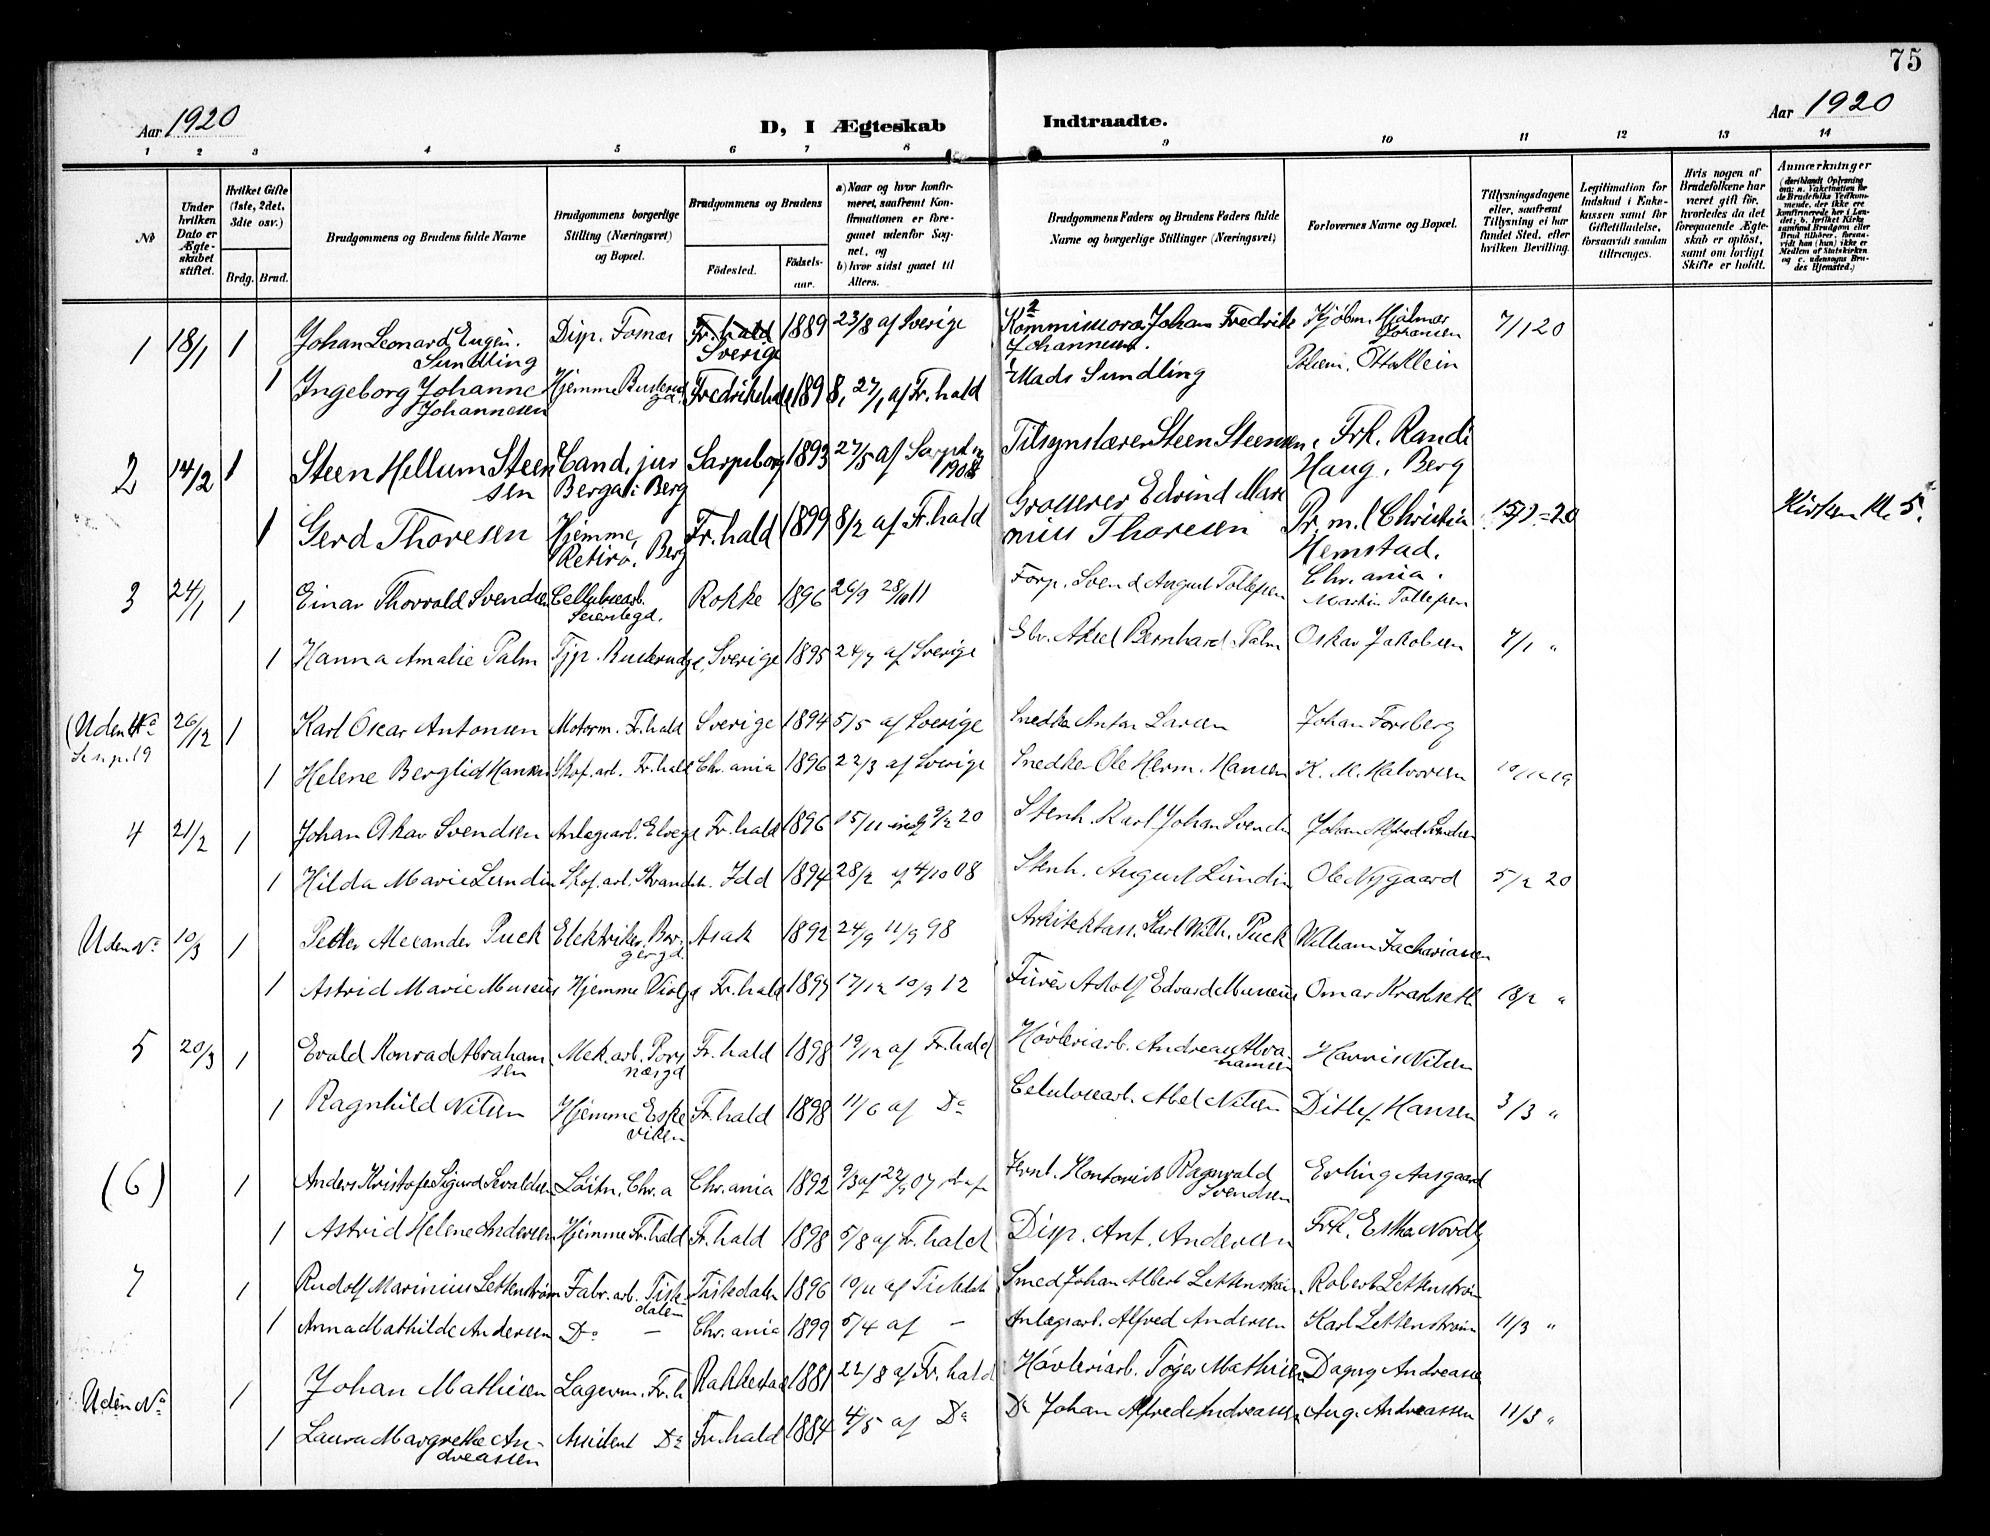 75
Aar 1920
D, I Ægteskab Indtraadte.
Aar 1920
1 2 3 4 5 6 7 8 9 10 11 12 13 14
No
Under hvilken Dato er Ægteskabet stiftet.
Hvilket Gifte (1ste, 2det, 3die osv.)
Brdg. Brud.
Brudgommens og Brudens fulde Navne
Brudgommens borgerlige Stilling (Næringsvei) og Bopæl.
Brudgommens og Brudens
Fødested. Fødselsaar.
a) Naar og hvor konfirmeret, saafremt Konfirmationen er foregaaet udenfor Sognet, og
b) hvor sidst gaaet til Alters.
Brudgommens Faders og Brudens Faders fulde Navne og borgerlige Stillinger (Næringsvei)
Forlovernes Navne og Bopæl.
Tillysningsdagene eller, saafremt Tillysning ei har fundet Sted, efter hvilken Bevilling.
Legitimation for Indskud i Enkekassen samt for Giftetilladelse, forsaavidt saadan tiltrænges.
Hvis nogen af Brudefolkene har været gift før, hvorledes da det foregaaende Ægteskab er opløst, samt om lovligt Skifte er holdt.
Anmærkninger
1 18/1 1 Johan Leonard Eugén Sundling Disp. Tomas Fr.hald Sverige 1889 23/8 af Sverige Kommissonær Johan Fredrik Johannesen. Kjøbm. Hjalmar Johansen 7/1 20
1 Ingeborg Johanne Johannesen Hjemme Fredrikshald 1898, 27/1 af Fr.hald Mads Sundling Otto Klein
2 14/2 1 Steen Hellum Steensen Cand. jur Berg i Berg Sarpsborg 1893 27/5 af Sarpsborg 1908 Tilsynslærer Steen Steensen, Frk. Randi Haug, Berg
1 Gerd Thoresen Hjemme, Retiro, Berg Fr.hald 1899 8/2 af Fr.hald Grosserer Edvind Marenius Thoresen Pr. m.l Christian Hemstad, Chr.ania. Kirken Kl. 5.
3 24/1 1 Einar Thorvald Svendsen Cellulosearb. Rokke 1896 26/9 28/10 11 Forp. Svend August Tollefsen Martin Tollefsen
1 Hanna Amalie Palm Tjp. Sverige 1895 24/7 af Sverige Gbr. Aksel Bernhard Palm Oskar Jakobsen 7/1 "
(Uden No 26/12 1 Karl Oscar Antonsen Motorm. Fr.hald Sverige 1894 5/5 af Sverige Snedker Anton Larsen Johan Forsberg
Se s.p. 19 1 Helene Berglid Hansen Skof. arb. Fr.hald Chr.ania 1896 22/3 af Sverige Snedker Ole Herm. Hansen K. M. Halvorsen
4 21/2 1 Johan Oskar Svendsen Anlægsarb. Elvegd Fr.hald 1896 15/11 Stenh. Karl Johan Svendsen Johan Alfred Svendsen
1 Hilda Marie Lundin Skof. arb. Strandst. Idd 1894 28/2 af 4/10 08 Stenh. August Lundin Ole Nygaard 5/2 20
Uden No 10/3 1 Petter Alexander Puck Elektriker, Borgergd. Asak 1892 24/9 11/9 98 Arkitektass. Karl Wilh. Puck William Zachariassen
1 Astrid Marie Musæus Hjemme Violgd Fr.hald 1897 17/12 10/9 12 Furér Adolf Edvard Musæus Omar Krabseth 18/2 "
5 20/3 1 Evald Konrad Abrahamsen Mek. arb. Porsnæsgd Fr.hald 1898 19/12 af Fr.hald Høvleriarb. Andreas Abrahamsen Harris Nilsen
1 Ragnhild Nilsen Hjemme Eskeviken Fr.hald 1898 11/6 af Do Celulosearb. Abel Nilsen Ditlef Hansen 3/3 "
(6) 1 Anders Kristofer Sigurd Sevaldsen Løitn. Chr.a Chr.ania 1892 Jernb. Kontorist Ragnvald Svendsen Erling Aasgaard
1 Astrid Helene Andersen Hjemme Fr.hald Fr.hald 1898 5/8 af Fr.hald Disp. Ant. Andersen Frk. Esther Nordby
7 1 Rudolf Marinius Lettenstrøm Fabr. arb. Tistedalen Tistedalen 1896 10/11 af Tistedalen Smed Johan Albert Lettenstrøm Robert Lettenstrøm
1 Anna Mathilde Andersen Do — Chr.ania 1899 5/4 af — Anlægsarb. Alfred Andersen Karl Lettenstrøm 11/3 "
Uden No 1 Johan Mathisen Lagerm. Fr.h Rakkestad 1881 22/8 af Fr.hald Høvleriarb. Tøger Mathisen Dagny Andreassen
1 Laura Margrethe Andreassen Assistent Do Fr.hald 1884 4/5 af Do Do Johan Alfred Andreassen Aug. Andreassen 11/3 "